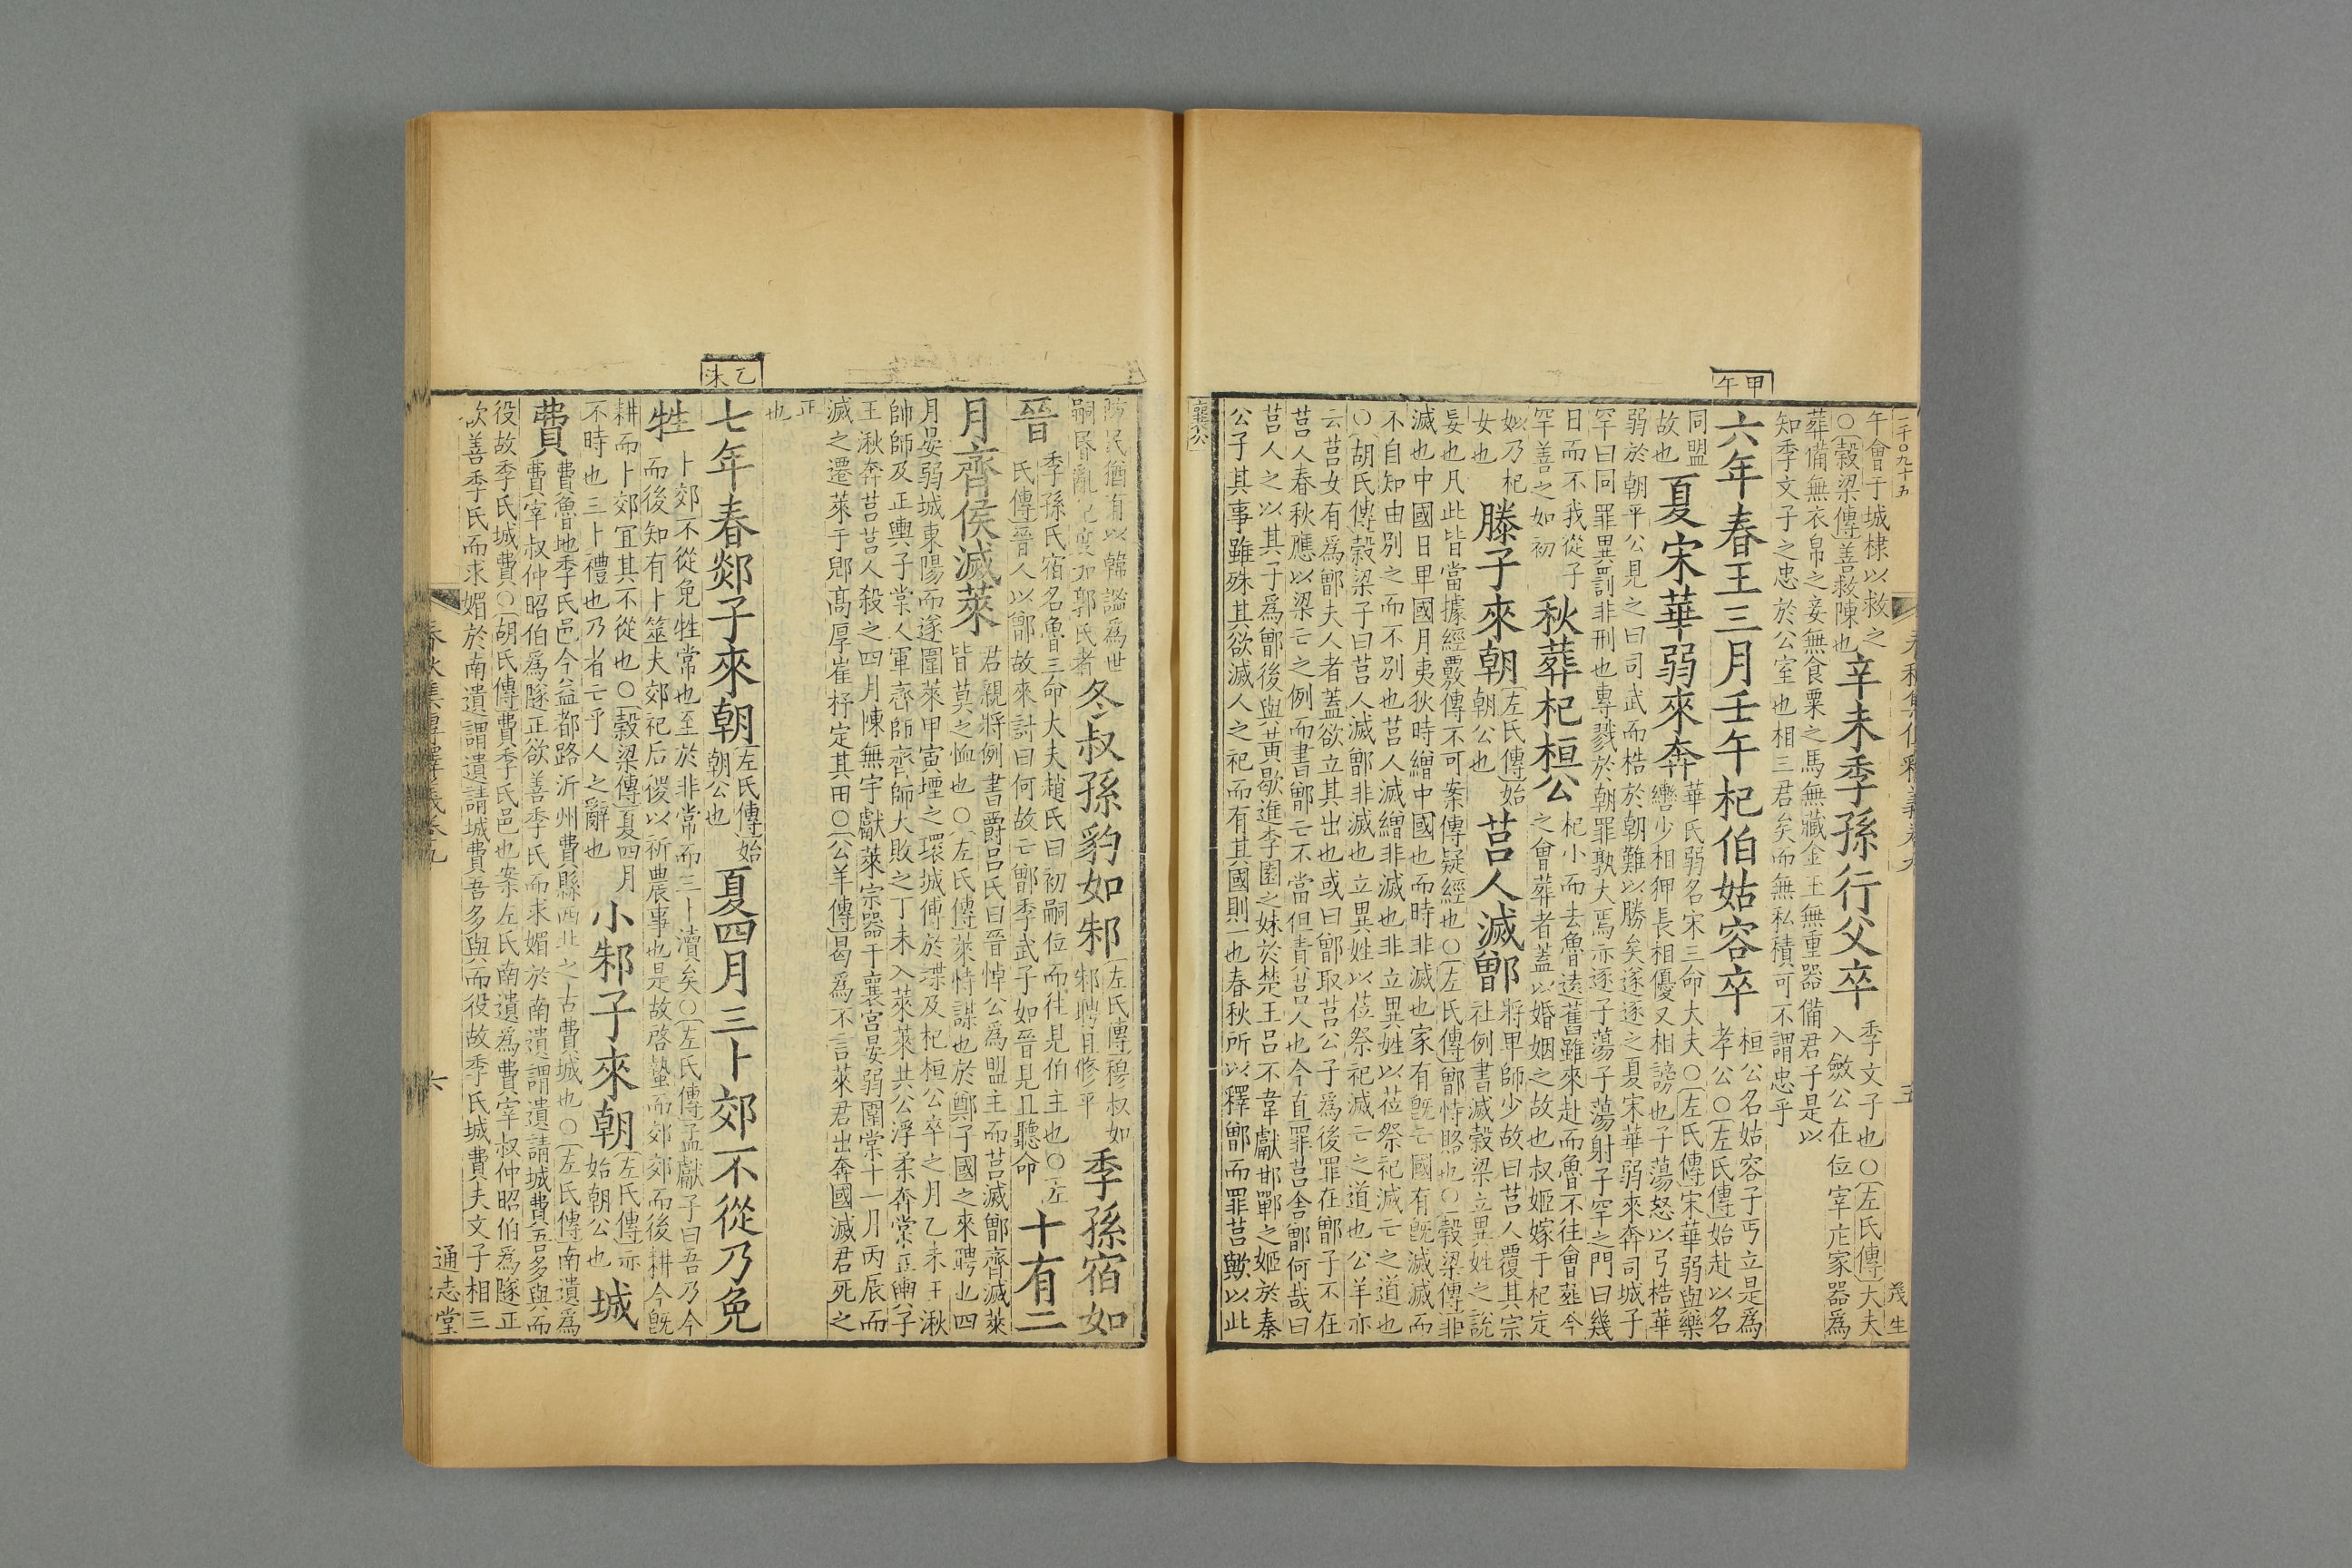 甲午
二千〇九十五
五
茂生
午會于城棣以救之
○穀梁傳善救陳也
辛未季孫行父卒
季文子也○左氏傳大夫
入斂公在位宰庀家器爲
葬備無衣帛之妾無食粟之馬無藏金玉無重器備君子是以
知季文子之忠於公室也相三君矣而無私積可不謂忠乎
六年春王三月壬午杞伯姑容卒
桓公名姑容子丐立是爲
孝公○左氏傳始赴以名
同盟
故也
夏宋華弱來奔
華氏弱名宋三命大夫○左氏傳宋華弱與樂
轡少相狎長相優又相謗也子蕩怒以弓梏華
弱於朝平公見之曰司武而梏於朝難以勝矣遂逐之夏宋華弱來奔司城子
罕曰同罪異罰非刑也專戮於朝罪孰大焉亦逐子蕩子蕩射子罕之門曰幾
日而不我從子
罕善之如初
秋葬杞桓公
杞小而去魯遠舊雖來赴而魯不往會葬今
之會葬者蓋以婚姻之故也叔姬嫁于杞定
姒乃杞
女也
滕子來朝
左氏傳始
朝公也
莒人滅鄫
將卑師少故曰莒人覆其宗
社例書滅穀梁立異姓之說
妄也凡此皆當據經覈傳不可案傳疑經也○左氏傳鄫恃賂也○穀梁傳非
滅也中國日卑國月夷狄時繒中國也而時非滅也家有旣亡國有旣滅滅而
不自知由別之而不別也莒人滅繒非滅也非立異姓以莅祭祀滅亡之道也
○胡氏傳穀梁子曰莒人滅鄫非滅也立異姓以莅祭祀滅亡之道也公羊亦
云莒女有爲鄫夫人者蓋欲立其出也或曰鄫取莒公子爲後罪在鄫子不在
莒人春秋應以梁亡之例而書鄫亡不當但責莒人也今直罪莒舍鄫何哉曰
莒人之以其子爲鄫後與黃歇進李園之妹於楚王呂不韋獻邯鄲之姬於秦
公子其事雖殊其欲滅人之祀而有其國則一也春秋所以釋鄫而罪莒歟以此
襄公
防民猶有以韓謐爲世
冬叔孫豹如邾
左氏傳穆叔如
邾聘且修平
季孫宿如
晉
季孫氏宿名魯三命大夫趙氏曰初嗣位而往見伯主也○左
氏傳晉人以鄫故來討曰何故亡鄫季武子如晉見且聽命
十有二
月齊侯滅萊
君親將例書爵呂氏曰晉悼公爲盟主而莒滅鄫齊滅萊
皆莫之恤也○左氏傳萊恃謀也於鄭子國之來聘也四
月晏弱城東陽而遂圍萊甲寅堙之環城傅於堞及杞桓公卒之月乙未王湫
帥師及正輿子棠人軍齊師齊師大敗之丁未入萊萊共公浮柔奔棠正輿子
王湫奔莒莒人殺之四月陳無宇獻萊宗器于襄宮晏弱圍棠十一月丙辰而
滅之遷萊于郳高厚崔杼定其田○公羊傳曷爲不言萊君出奔國滅君死之
正
也
乙未
七年春郯子來朝
左氏傳始
朝公也
夏四月三卜郊不從乃免
牲
卜郊不從免牲常也至於非常而三卜瀆矣○左氏傳孟獻子曰吾乃今
而後知有卜筮夫郊祀后稷以祈農事也是故啓蟄而郊郊而後耕今旣
耕而卜郊宜其不從也○穀梁傳夏四月
不時也三卜禮也乃者亡乎人之辭也
小邾子來朝
左氏傳亦
始朝公也
城
費
費魯地季氏邑今益都路沂州費縣西北之古費城也○左氏傳南遺爲
費宰叔仲昭伯爲隧正欲善季氏而求媚於南遺謂遺請城費吾多與而
役故季氏城費○胡氏傳費季氏邑也案左氏南遺爲費宰叔仲昭伯爲隧正
欲善季氏而求媚於南遺謂遺請城費吾多與而役故季氏城費夫文子相三
六
通志堂